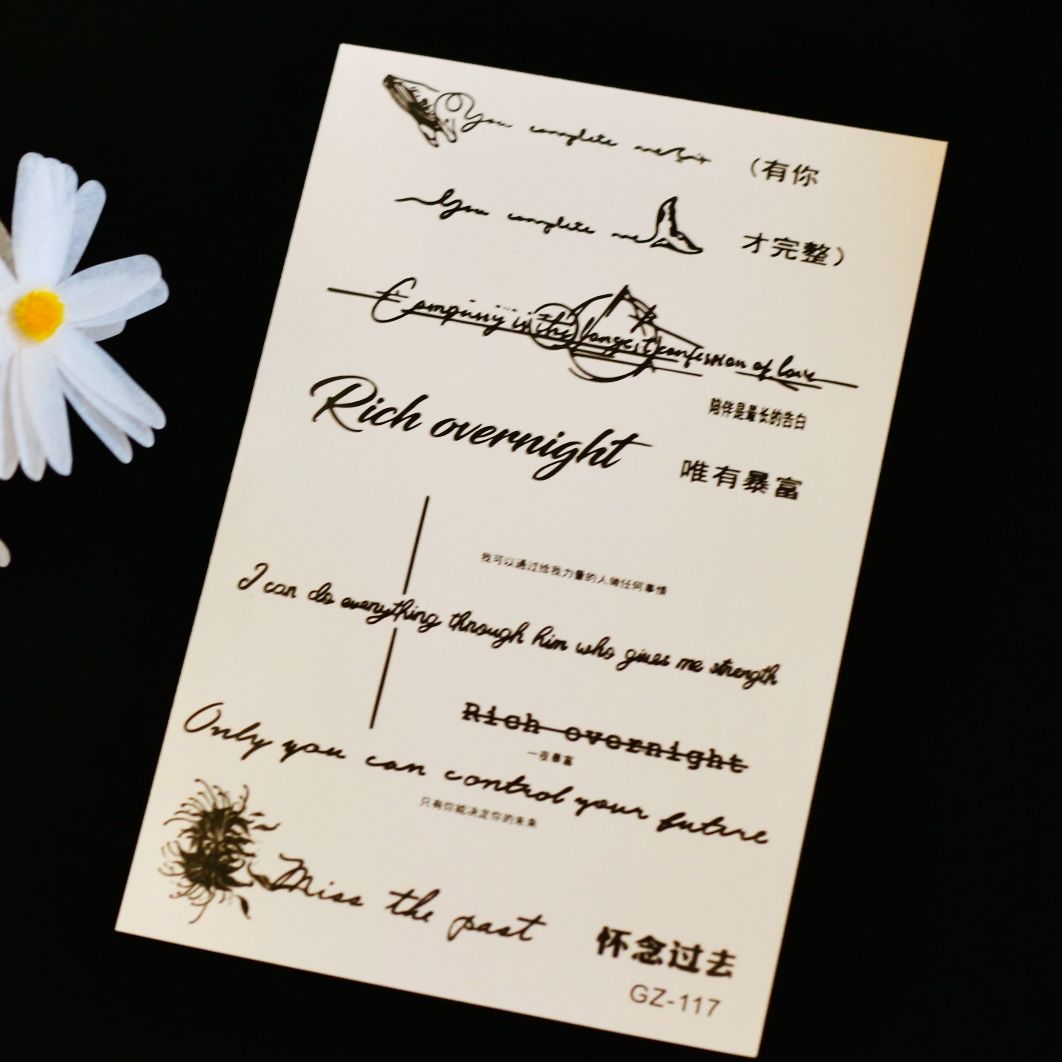 You complete me （有你
You complete me 才完整）
Company is the longest confession of love
陪伴是最长的告白
Rich overnight 唯有暴富
我可以通过给我力量的人做任何事情
I can do everything through him who gives me strength
Rich overnight
一夜暴富
Only you can control your future
只有你能决定你的未来
Miss the past 怀念过去
GZ-117